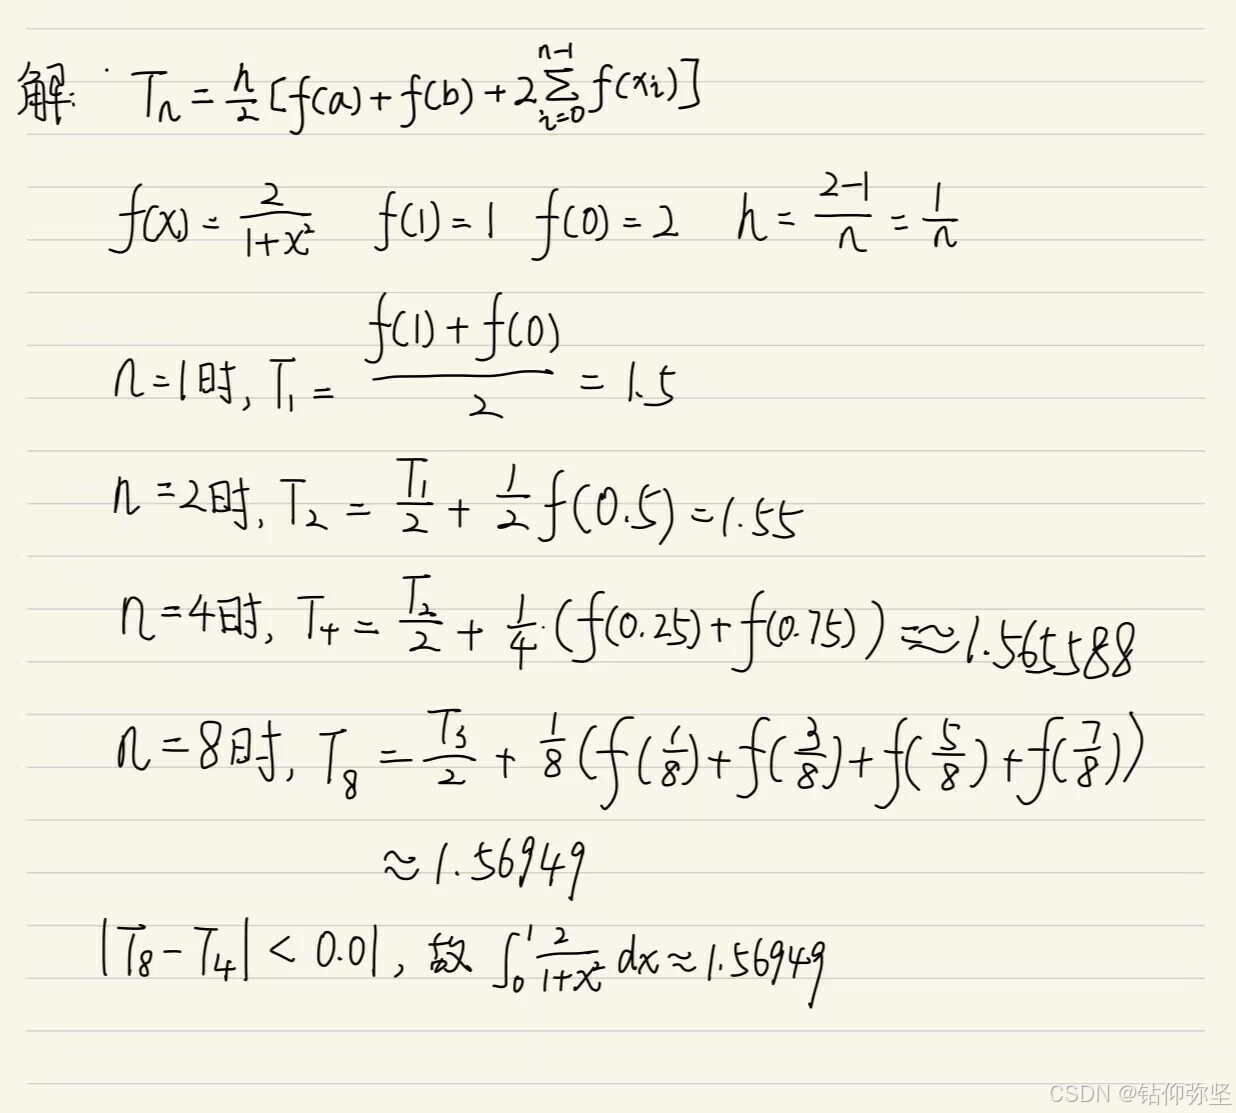 解: T_n = h/2 [f(a) + f(b) + 2∑_{i=0}^{n-1} f(x_i)]
f(x) = 2/(1+x²) f(1) = 1 f(0) = 2 h = (2-1)/n = 1/n
n=1时, T_1 = (f(1) + f(0))/2 = 1.5
n=2时, T_2 = T_1/2 + 1/2 f(0.5) = 1.55
n=4时, T_4 = T_2/2 + 1/4·(f(0.25) + f(0.75)) ≈ 1.565588
n=8时, T_8 = T_3/2 + 1/8 (f(1/8) + f(3/8) + f(5/8) + f(7/8))
≈ 1.56949
|T_8 - T_4| < 0.01, 故 ∫_0^1 2/(1+x²) dx ≈ 1.56949
CSDN @钻仰弥坚